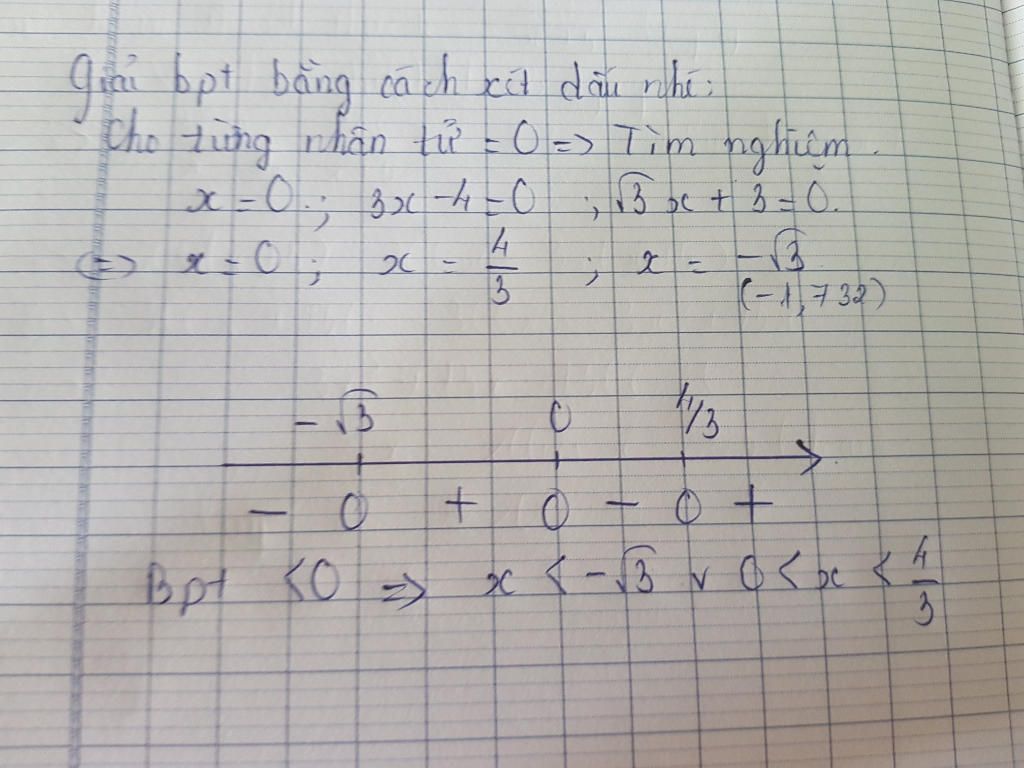 Giải bpt bằng cách xét dấu nhé:
Cho từng nhân tử = 0 => Tìm nghiệm.
x = 0 ; 3x - 4 = 0 ; √3 x + 3 = 0.
<=> x = 0 ; x = 4/3 ; x = -√3
(-1,732)
-√3 0 4/3
- 0 + 0 - 0 +
Bpt < 0 => x < -√3 v 0 < x < 4/3